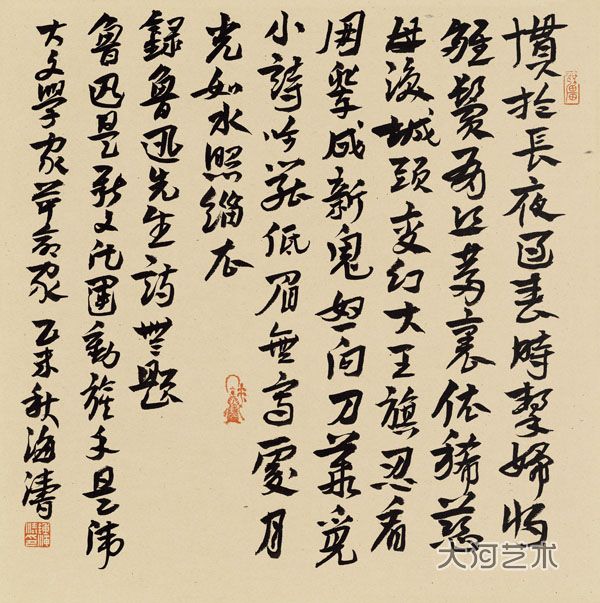 慣於長夜過春時挈婦將
雛鬢有絲夢裏依稀慈
母淚城頭變幻大王旗忍看
朋輩成新鬼怒向刀叢覓
小詩吟罷低眉無寫處月
光如水照緇衣
録魯迅先生詩無題
魯迅是新文化運動旗手是偉
大文學家革命家 乙未秋海濤
大河艺术